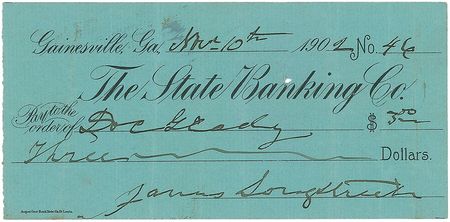 Gainesville, Ga. Nov 10th 1902 No. 46
The State Banking Co.
Pay to the order of Doc Grady $ 3.00
Three Dollars.
James Longstreet